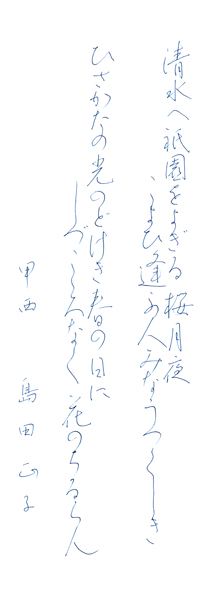 清水へ祇園をよぎる桜月夜
こよひ逢ふ人みなうつくしき
ひさかたの光のどけき春の日に
しづこゝろなく花のちるらん
甲西 島田正子